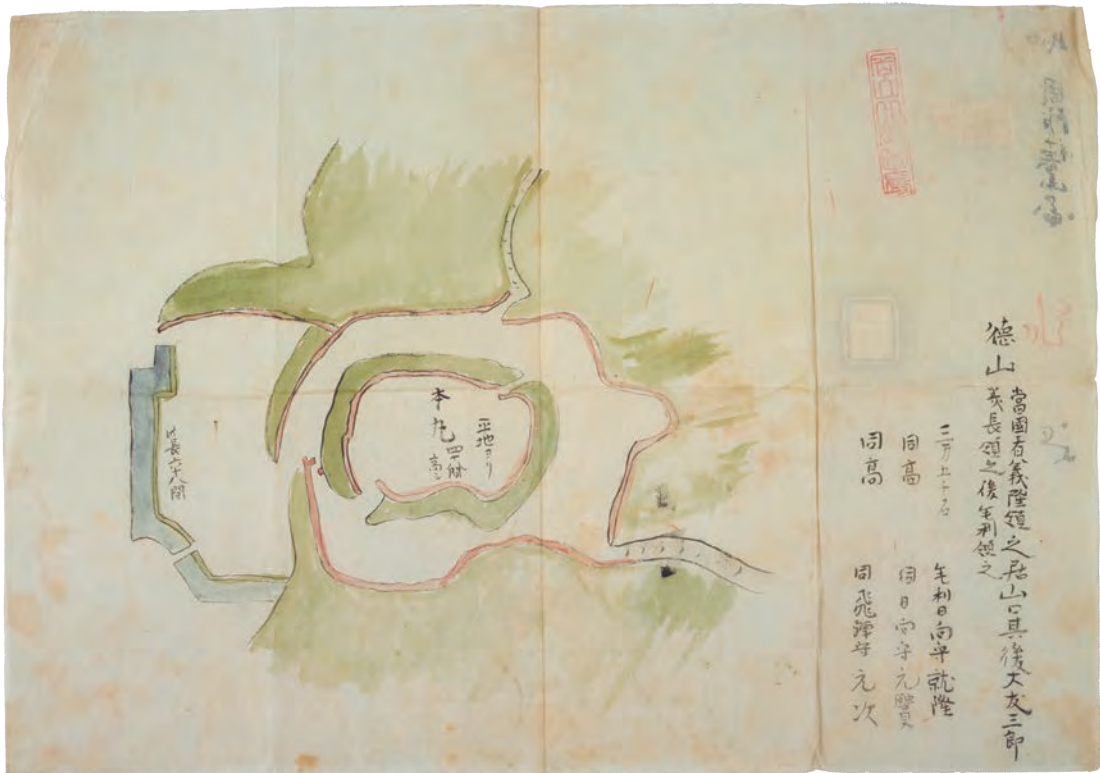 徳山
當國者義隆領之居山口其後大友三郎
義長領之後毛利領之
三万五千石 毛利日向守就隆
同高 同日向守元賢
同高 同飛騨守元次
本丸
平地ヨリ
四十間
高シ
長六十八間